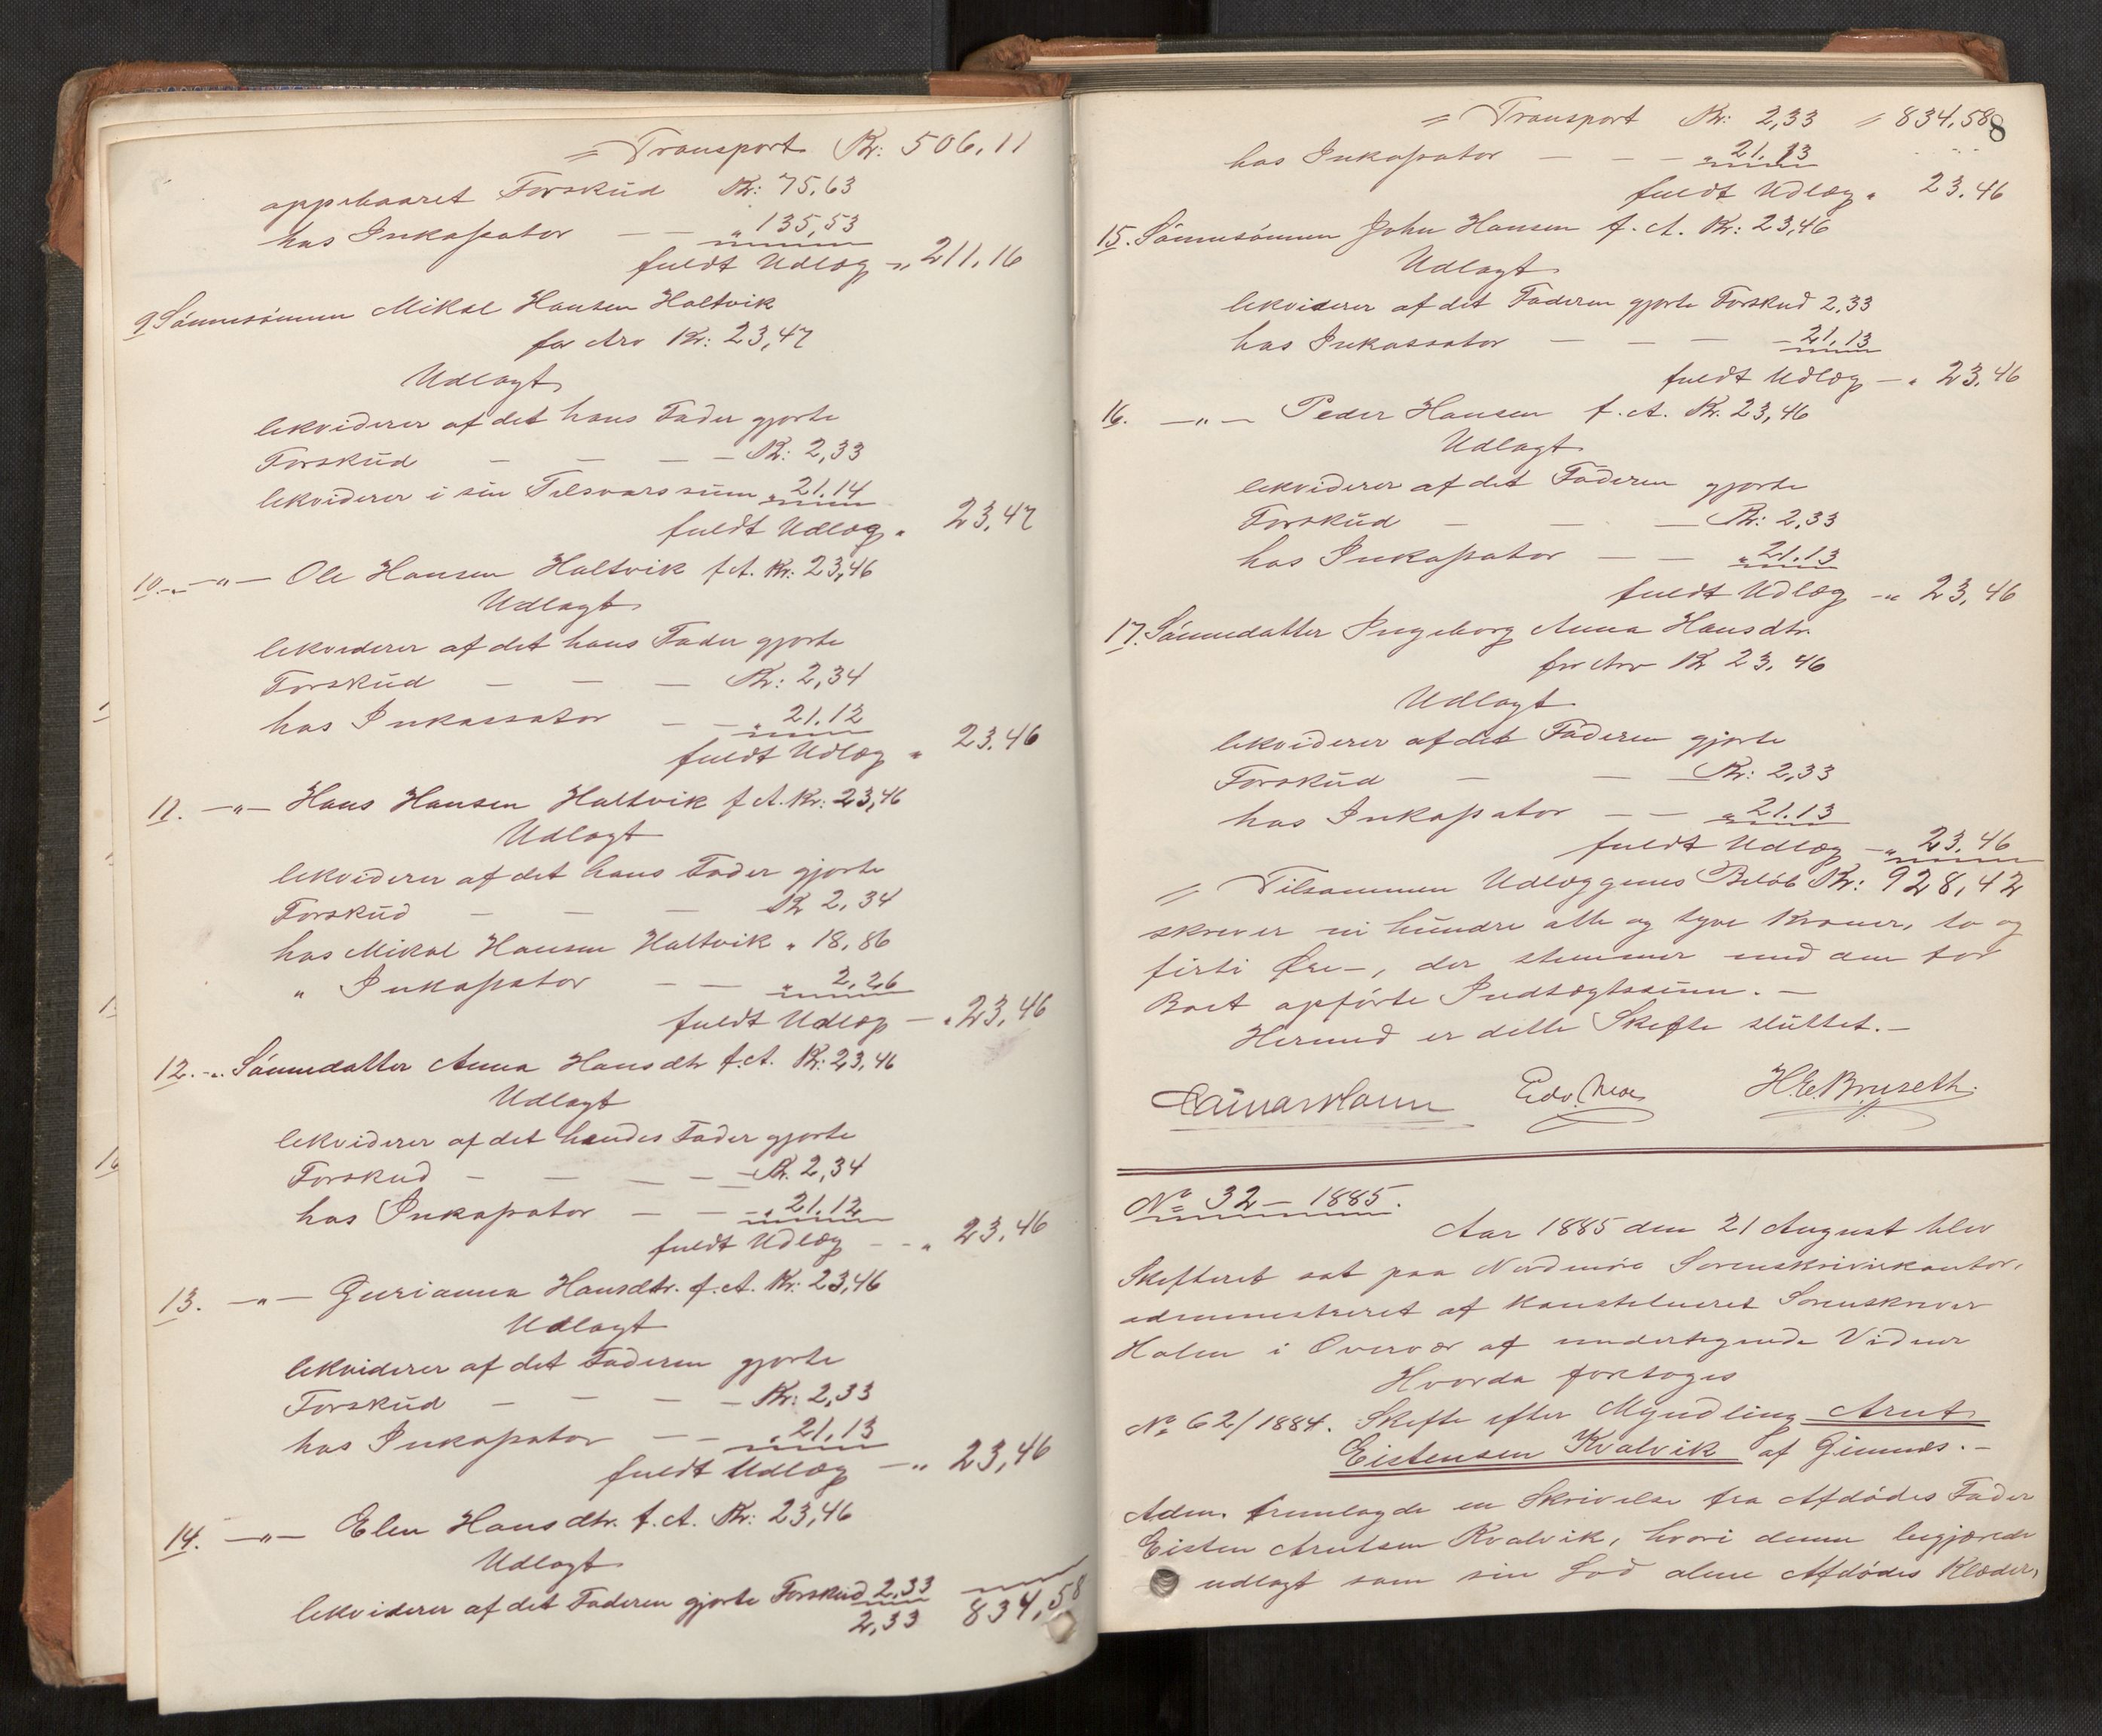 = Transport Kr: 506,11
oppebaaret Forskud Kr: 75,63
hos Inkassator — — „ 135,53
fuldt Udlæg -„ 211,16
9 Sønnesønnen Mikal Hansen Haltvik
for Arv Kr: 23,47
Udlagt
lekviderer af det hans Fader gjorte
Forskud — — — — Kr: 2,33
lekviderer i sin Tilsvarssum „ 21,14
fuldt Udlæg „ 23,47
10. -„- Ole Hansen Haltvik f. A. Kr: 23,46
Udlagt
lekviderer af det hans Fader gjorte
Forskud — — — Kr: 2,34
hos Inkassator — — „ 21,12
fuldt Udlæg „ 23,46
11. -„- Hans Hansen Haltvik f. A. Kr: 23,46
Udlagt
lekviderer af det hans Fader gjorte
Forskud — — — Kr 2,34
hos Mikal Hansen Haltvik „ 18,86
„ Inkassator — — „ 2,26
fuldt Udlæg — „ 23,46
12. -„ Sønnedatter Anna Hansdtr f. A. Kr: 23,46
Udlagt
lekviderer af det hendes Fader gjorte
Forskud — — — — Kr. 2,34
hos Inkassator — — -„ 21,12
fuldt Udlæg — -„ 23,46
13. -„- Gurianna Hansdtr. f. A. Kr: 23,46
Udlagt
lekviderer af det Faderen gjorte
Forskud — — — — Kr: 2,33
hos Inkassator — — „ 21,13
fuldt Udlæg -„ 23,46
14. -„- Elen Hansdtr. f. A. Kr: 23,46
Udlagt
lekviderer af det Faderen gjorte Forskud 2,33
2,33 834,58
8
= Transport Kr: 2,33 = 834,58
hos Inkassator — — — „ 21,13
fuldt Udlæg „ 23,46
15. Sønnesønnen John Hansen f. A. Kr: 23,46
Udlagt
lekviderer af det Faderen gjorte Forskud 2,33
hos Inkassator — — — — 21,13
fuldt Udlæg — „ 23,46
16. -„- Peder Hansen f. A. Kr. 23,46
Udlagt
lekviderer af det Faderen gjorte
Forskud — — — Kr: 2,33
hos Inkassator — — „ 21,13
fuldt Udlæg -„ 23,46
17. Sønnedatter Ingeborg Anna Hansdtr.
for Arv Kr 23,46
Udlagt
lekviderer af det Faderen gjorte
Forskud — — — Kr: 2,33
hos Inkassator — — „ 21,13
fuldt Udlæg -„ 23,46
= Tilsammen Udlæggenes Beløb Kr: 928,42
skriver ni hundre otte og tyve Kroner, to og
førti Øre —, der stemmer med den for
Boet opførte Indtægtssum. —
Hermed er dette Skifte sluttet. —
Edv. Moe H. E. Bruseth.
No 32 — 1885.
Aar 1885 den 21 August blev
Skifteret sat paa Nordmøre Sorenskriverkontor,
administreret af konstitueret Sorenskriver
Holm i Overvær af undertegnede Vidner
Hvorda foretoges
No 62/1884. Skifte efter Myndling Arnt
Eistensen Kvalvik af Gimnes. —
Adm. fremlagde en Skrivelse fra Afdødes Fader
Eisten Arntsen Kvalvik, hvori denne begjærede
udlagt som sin Lod alene Afdødes Klæder,